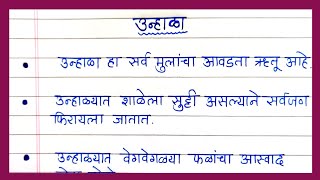 उन्हाळा
• उन्हाळा हा सर्व मुलांचा आवडता ऋतू आहे.
• उन्हाळ्यात शाळेला सुट्टी असल्याने सर्वजन
फिरायला जातात.
• उन्हाळ्यात वेगवेगळ्या फळांचा आस्वाद